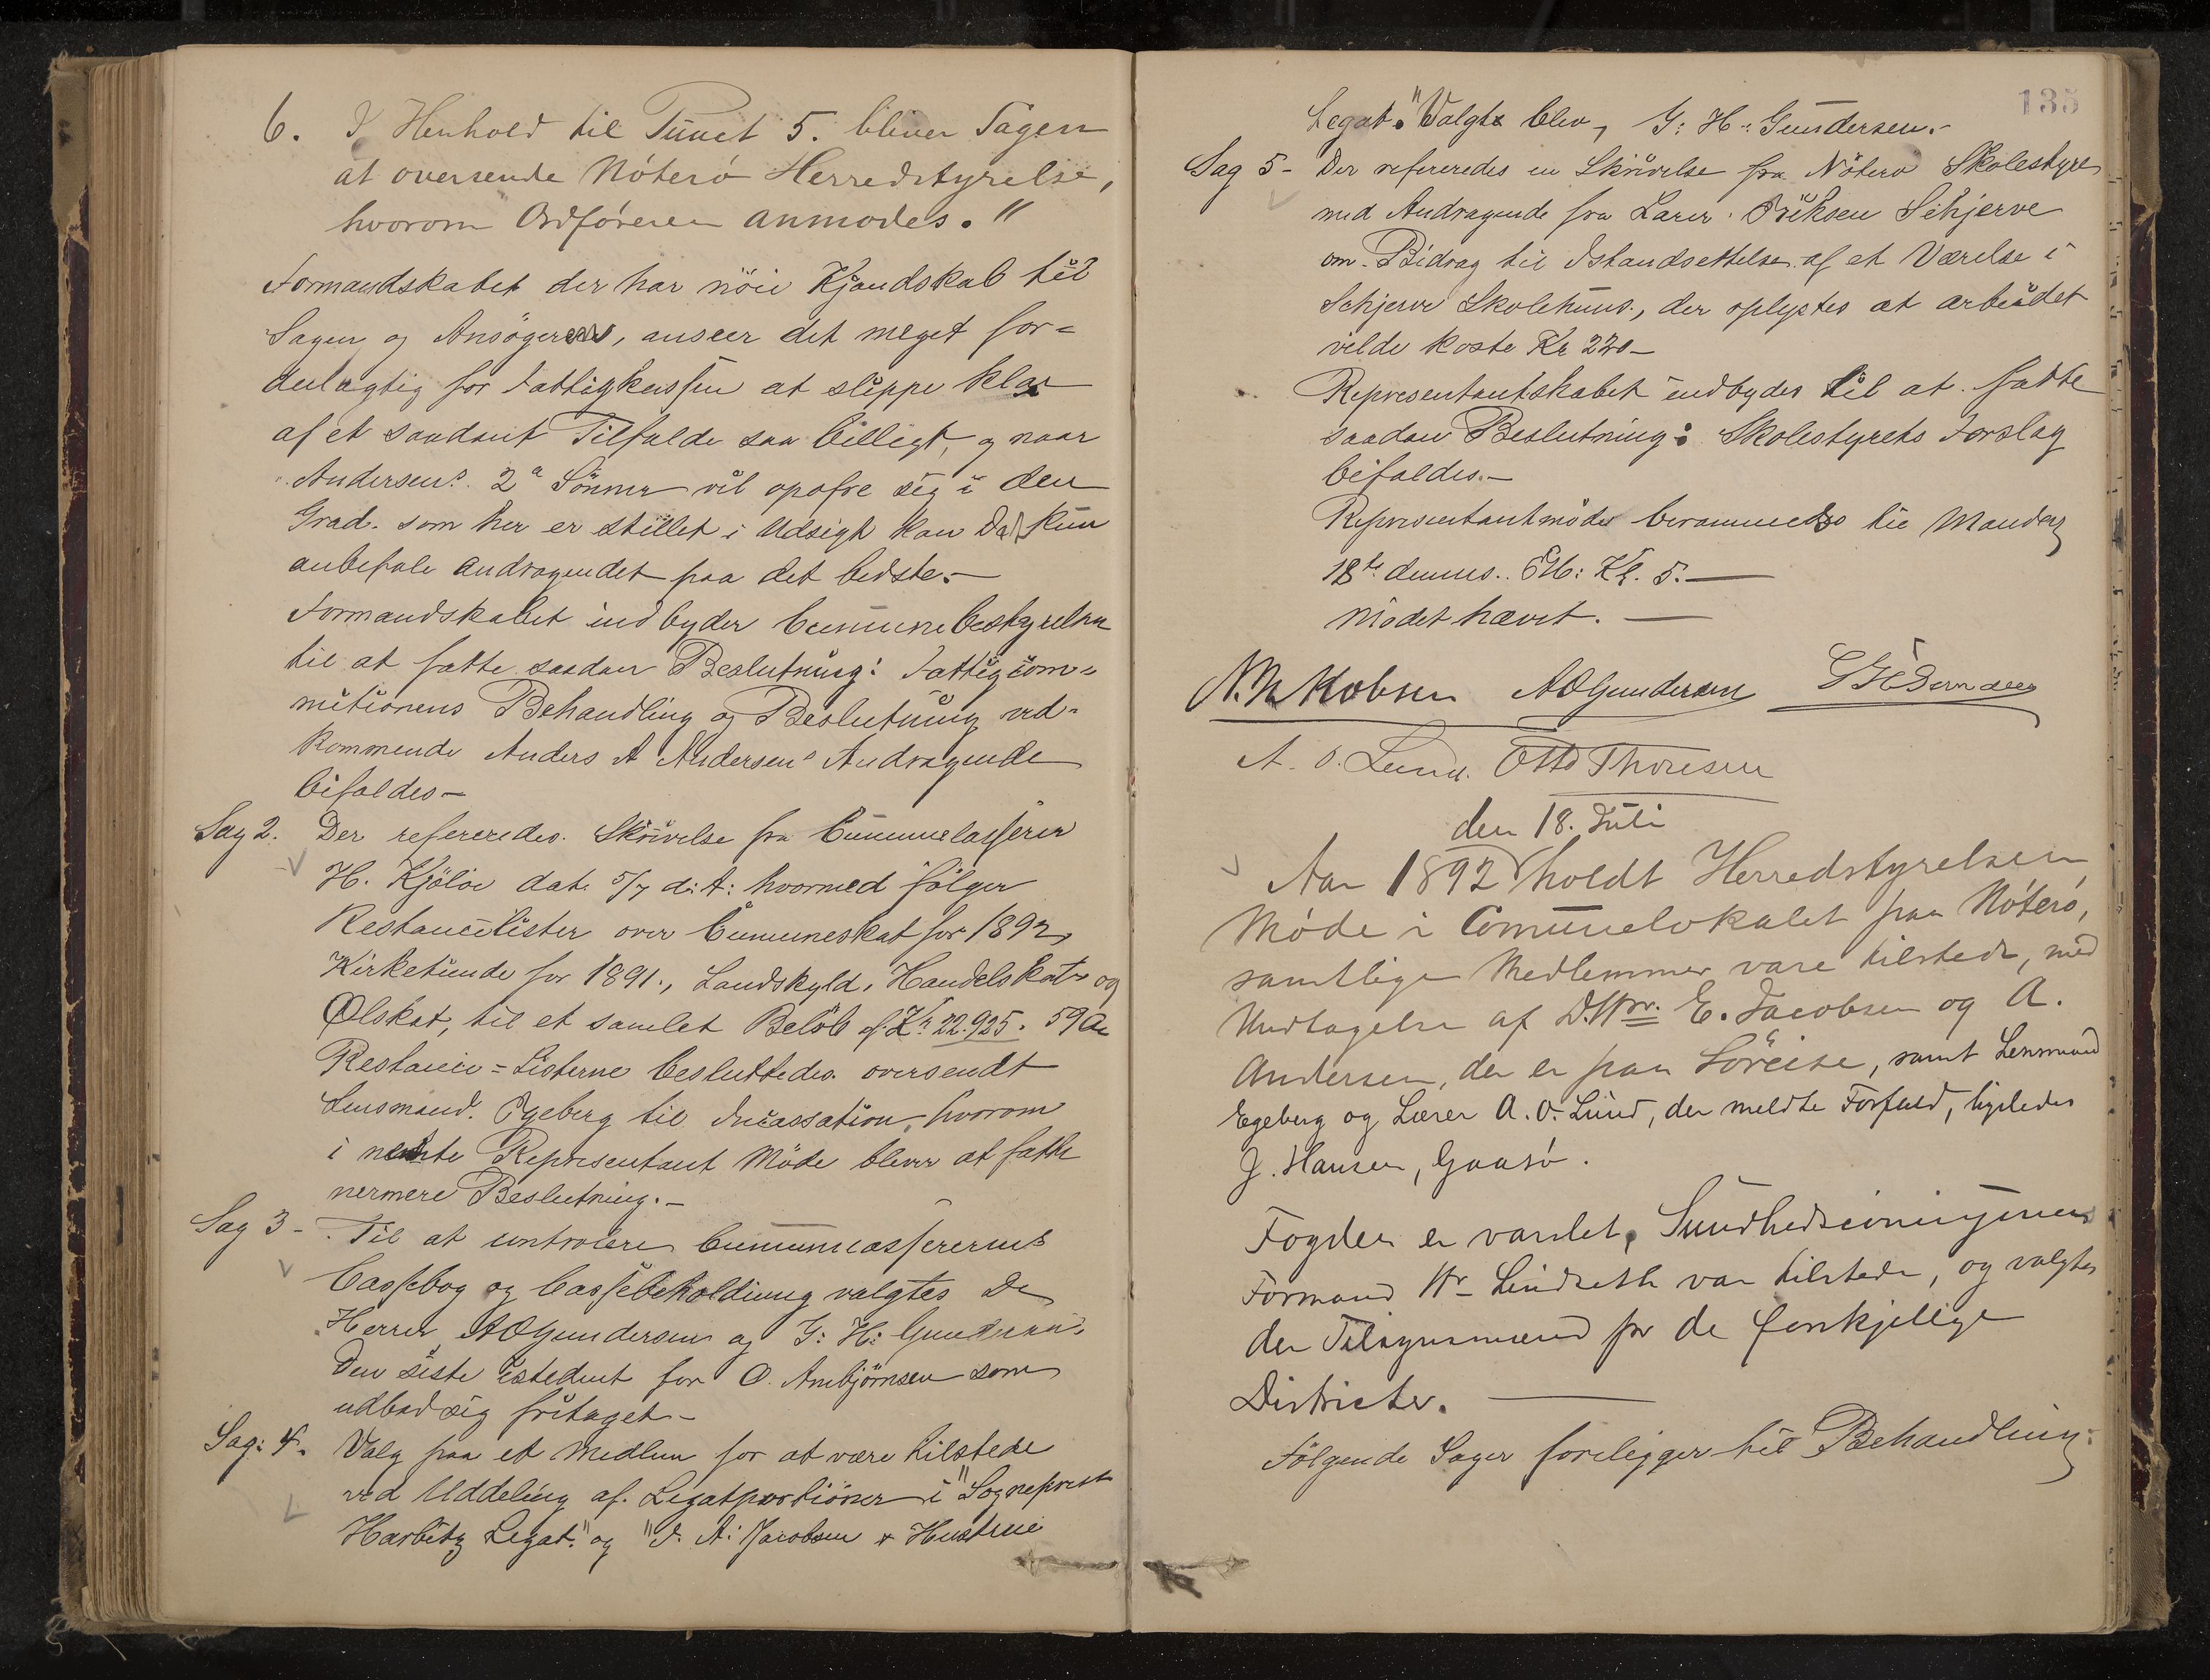 6. I Henhold til Punct 5. bliver Sagen
at oversende Nóteró Herredstyrelse,
hvorom Ordføreren anmodes."
Formandskabet der har nöie Kjendskab til
Sagen og Ansögeren, anseer det meget for=
delagtig for Fattigkassen at slippe klar
af et saadant Tilfælde saa billigt, og naar
Andersens 2de Sönner vil opofre sig i den
Grad som her er stillet i Udsigt kan Det kun
anbefale andragendet paa det bedste.-
Formandskabet indbyder Communebestyrelsen
til at fatte saadan Beslutning: Fattigcom-
mitionens Behandling og Beslutning ved-
kommende Anders A Andersens Andragende
bifaldes-
Sag 2. Der refereredes Skrivelse fra Communecasserer
H. Kjölöe dat. 5/7 d: A: hvormed fölger
Restancelister over Communeskat for 1892,
Kirketiende for 1891., Landskyld, Handelskat og
Ølskat, til et samlet Belöb af Kr 22.925. 59 Øre
Restance=Listerne besluttedes oversendt
Lensmand Egeberg til Incassation, hvorom
i neste Representant Möde bliver at fatte
nermere Beslutning.-
Sag 3- Til at controlere Communecassererens
Cassebog og Cassebeholdning valgtes De
Herrer AOGundersen og G: H: Gundersen,
Den siste istedent for O. Ambjörnsen som
udbad sig fritaget-
Sag: 4. Valg paa et Medlem for at være tilstede
ved Uddeling af Legatportioner i "Sogneprest
Harbitz Legat" og "J. A: Jacobsen & Hustrue
135
Legat." Valgt blev, G: H: Gundersen.-
Sag 5- Der refereredes en Skrivelse fra Nöterö Skolestyre
med Andragende fra Lærer Eriksen Schjerve
om Bidrag til Istandsettelse af et Værelse i
Schjerve Skolehuus, der oplystes at arbeidet
vilde koste Kr 220-
Representantskabet indbydes til at fatte
saadan Beslutning: Skolestyrets Forslag
bifaldes.-
Representantmöde berammedes til Mandag
18de dennes. EM: Kl. 5.-
Mödet hævet.-
AOGundersen
A. O. Lund. Otto Thoresen
den 18. Juli
Aar 1892 holdt Herredstyrelsen
Móde i Communelokalet paa Nóteró,
samtlige Medlemmer vare tilstede, med
Undtagelse af D'Hrr. E. Jacobsen og A.
Andersen, der er paa Sóreise, samt Lensmand
Egeberg og Lærer A. O. Lund, der meldte Forfald, ligeledes
J. Hansen, Gaasó.
Fogden er varslet, Sundhedscomisjonens
Formand Hr Lindseth var tilstede, og valgtes
der Tilsynsmænd for de forskjellige
Districter.
Fölgende Sager foreligger til Behandling: